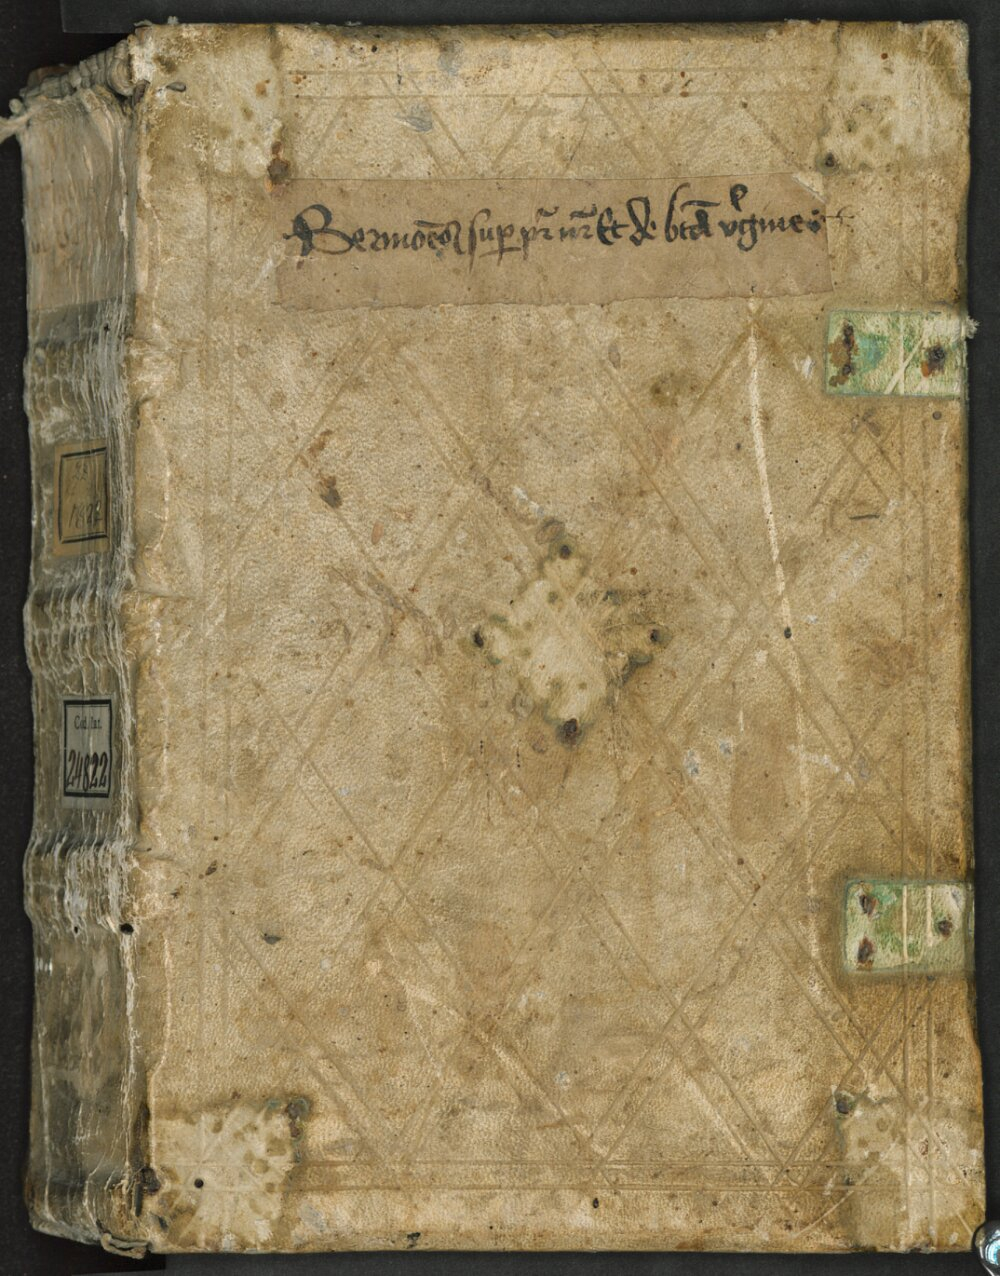 Sermões sup pr̄ nr̄ Et de btā vᵉgine
Cod. lat.
24822